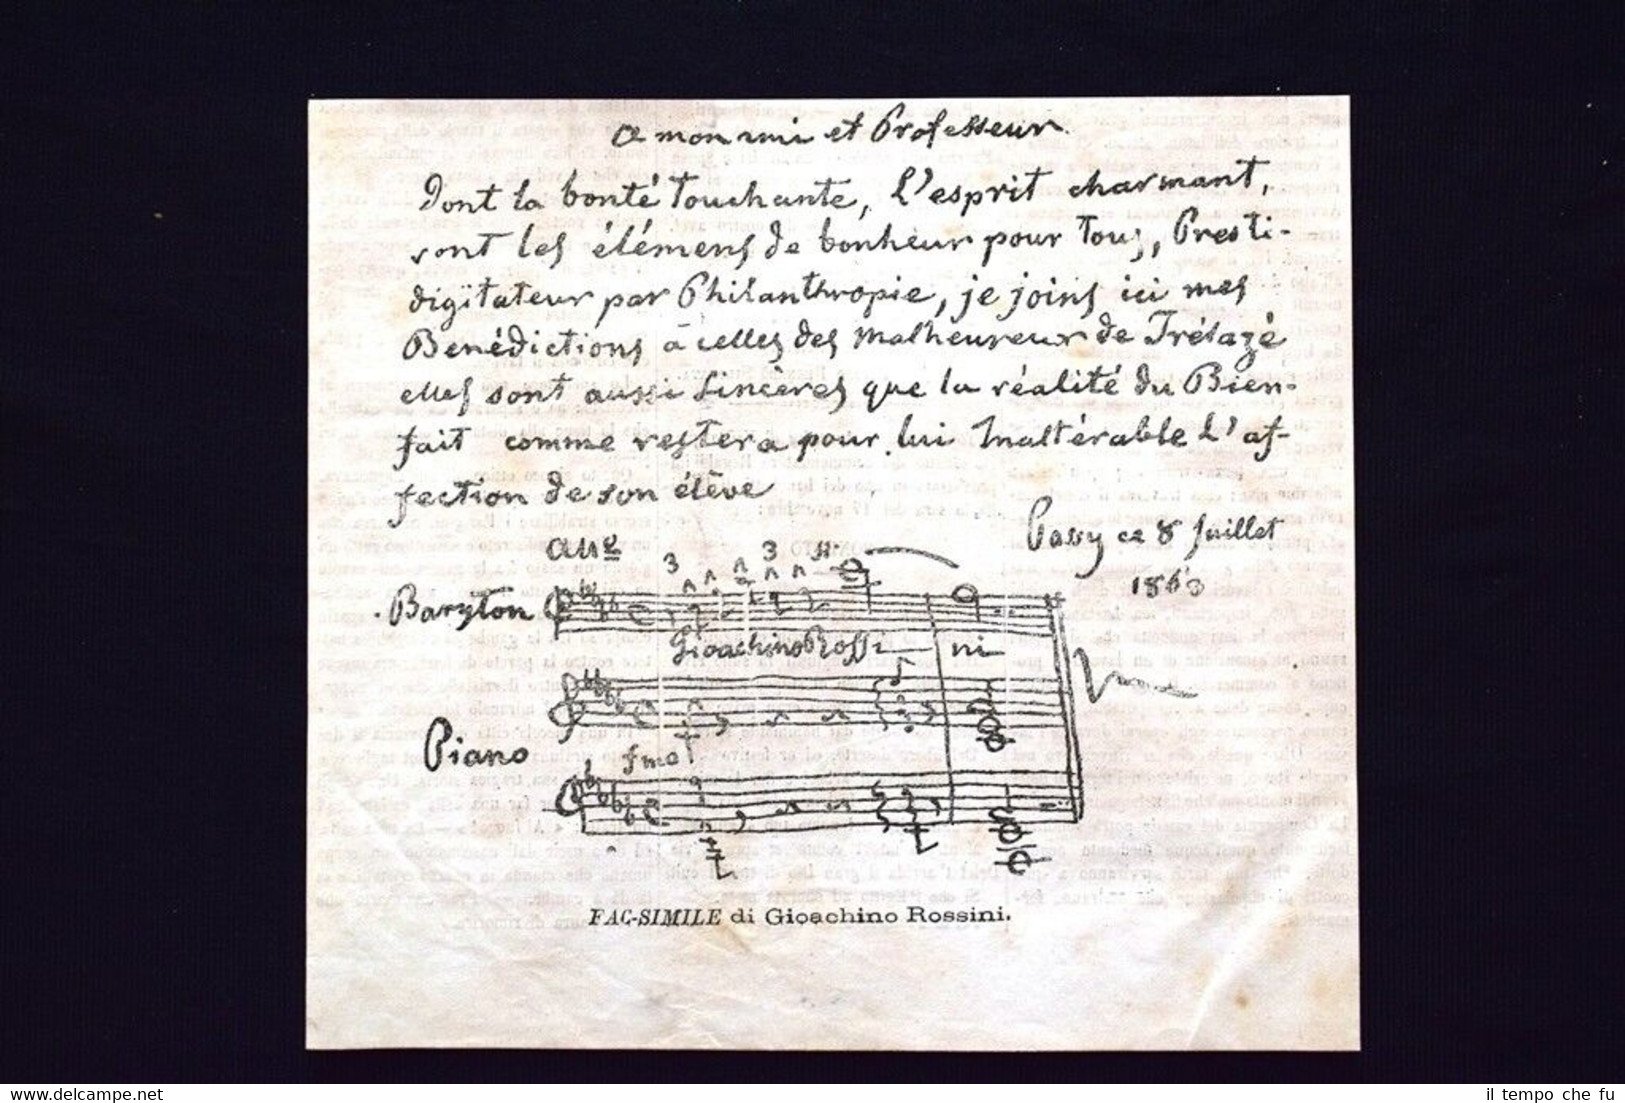 a mon ami et Professeur
dont la bonté touchante, l'esprit charmant,
sont les élémens de bonheur pour tous, Presti-
digitateur par Philanthropie, je joins ici mes
Bénédictions à celles des malheureux de Trélazé
elles sont aussi sincères que la réalité du Bien-
fait comme restera pour lui Inaltérable l'af-
fection de son élève
Passy ce 8 Juillet
1863
All°
3 3
Baryton
Gioachino Rossi ni
Piano
FAC-SIMILE di Gioachino Rossini.
il tempo che fu